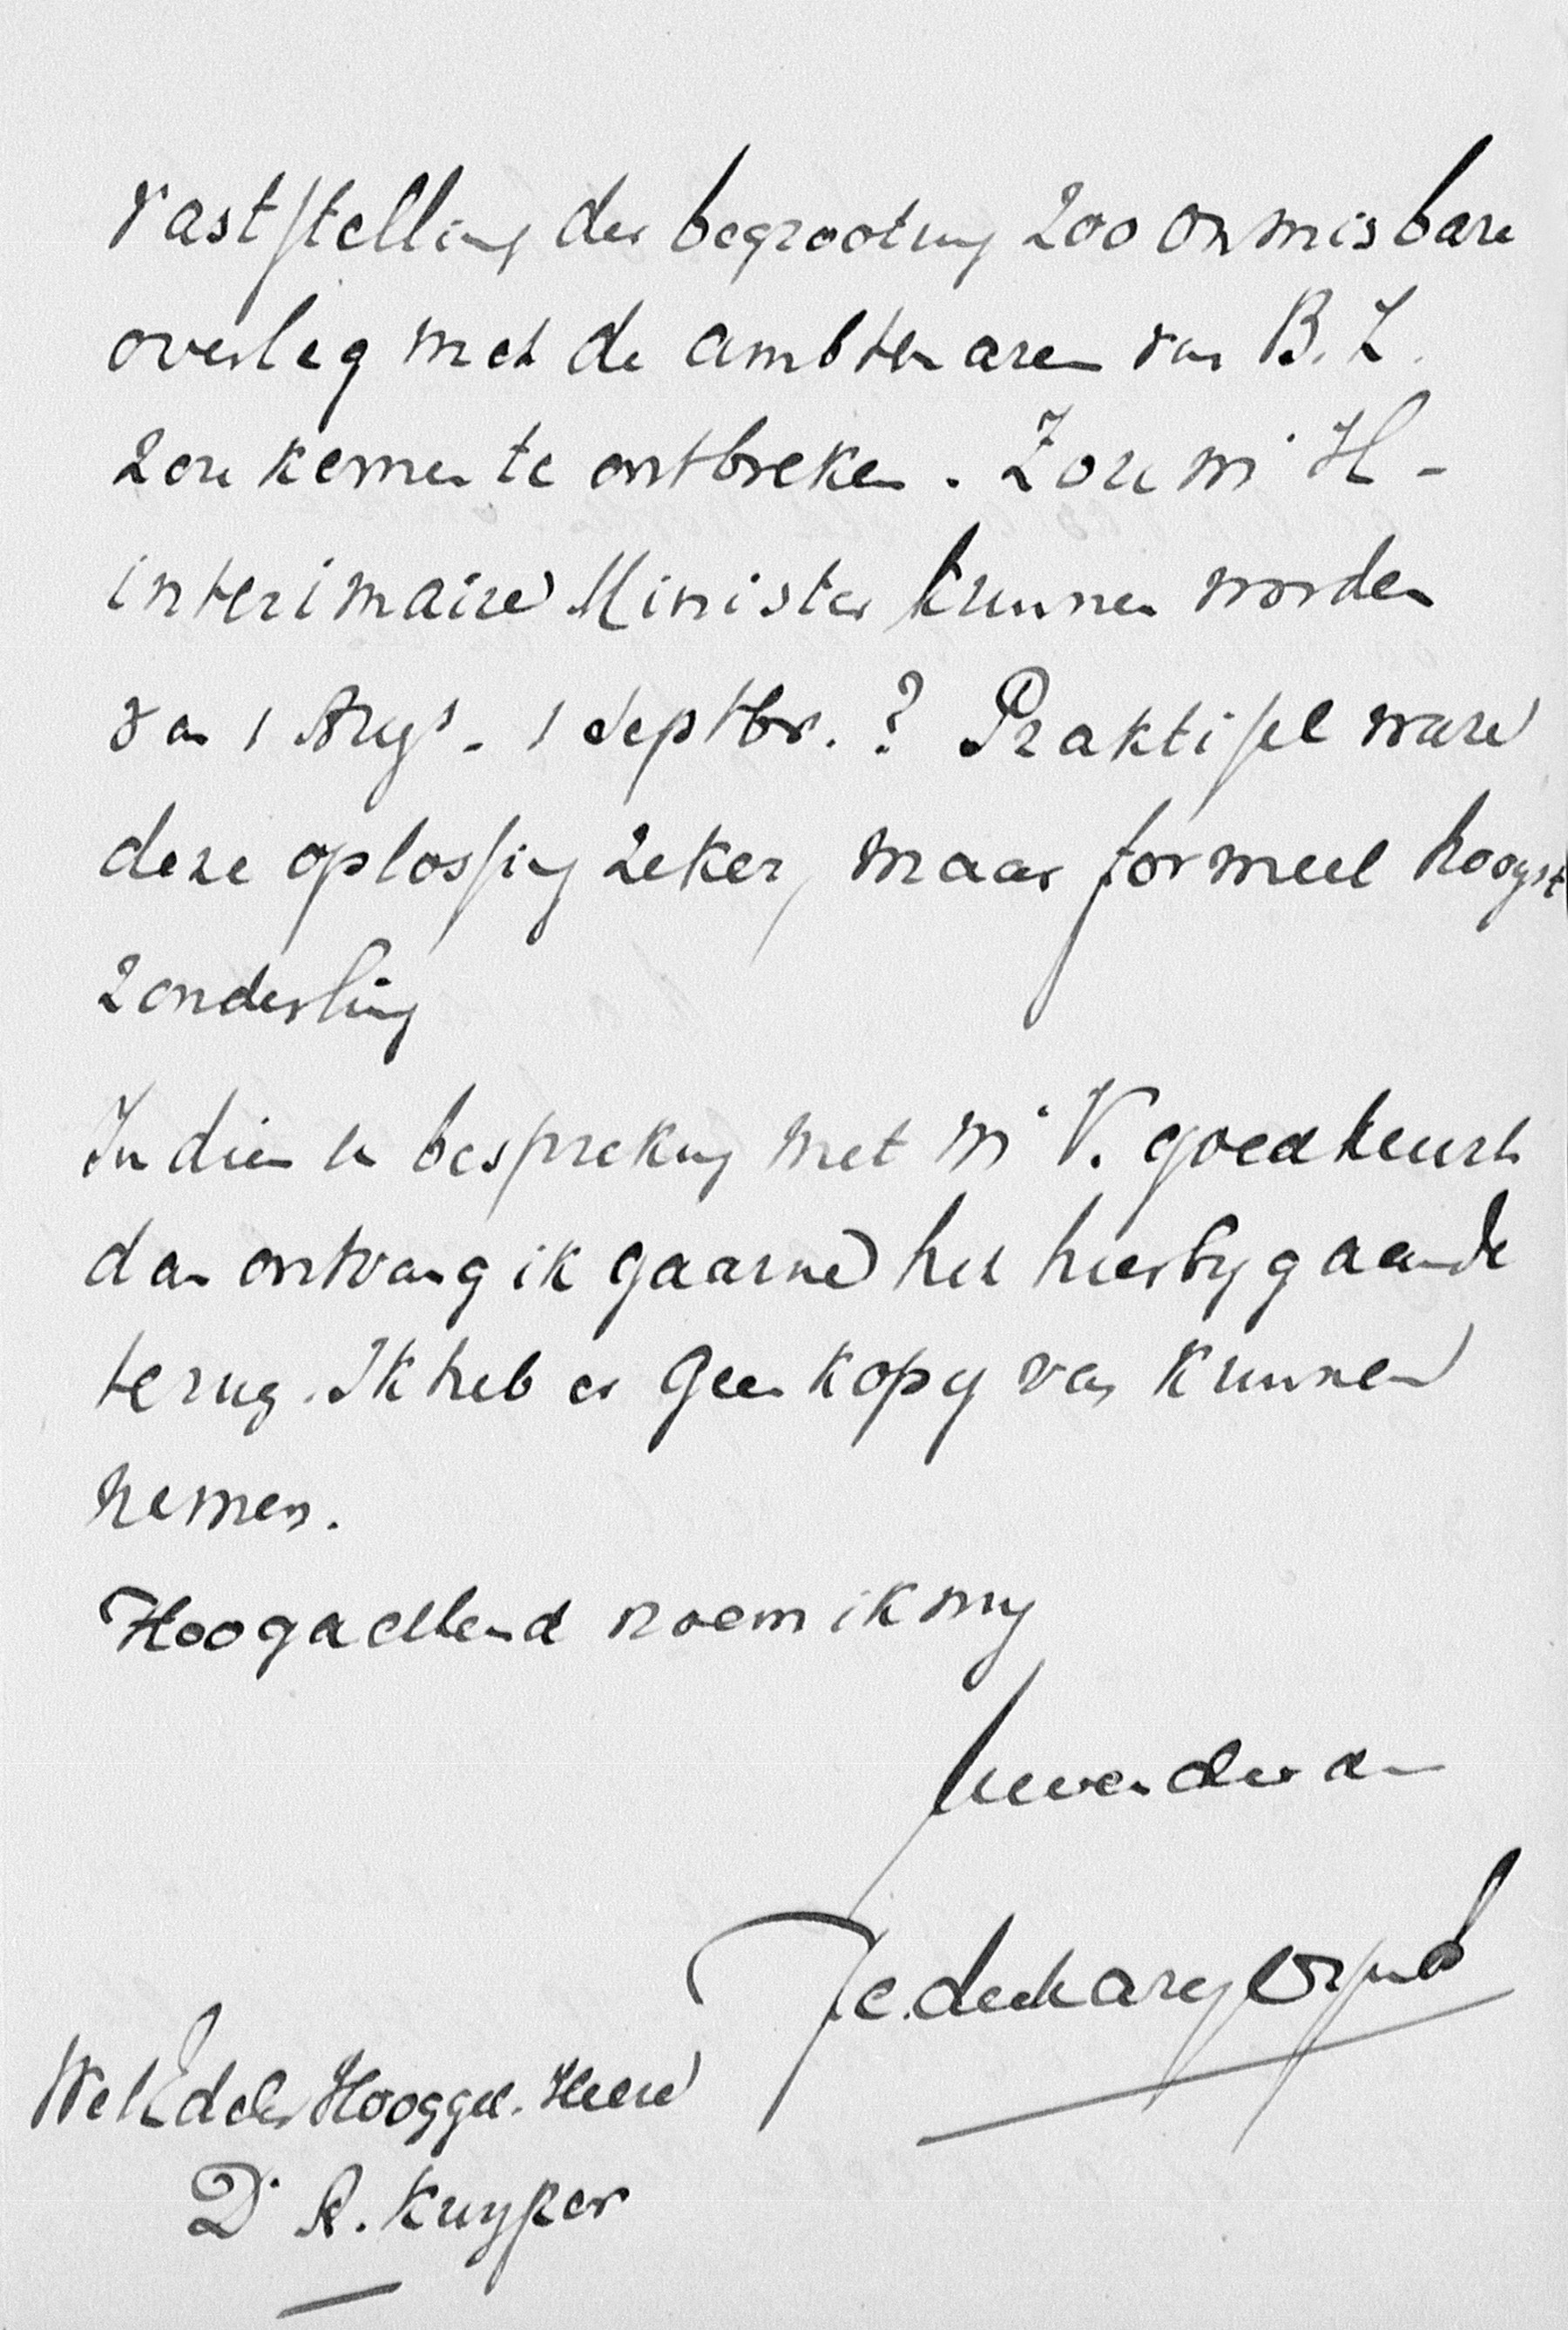 vaststelling der begrooting zoo onmisbare
overleg met de ambtenaren van B. Z.
zou komen te ontbreken. Zou mr H -
interimaire Minister kunnen worden
van 1 Augs - 1 Septbr. ? Praktisch ware
deze oplossing zeker, maar formeel hoogst
zonderling
Indien u bespreking met mr V. goedkeurt
dan ontvang ik gaarne het hierbygaande
terug. Ik heb er geen kopy van kunnen
nemen.
Hoogachtend noem ik my
Uw en dw dn
WelEdele Hooggel. Heere
Dr A. Kuyper